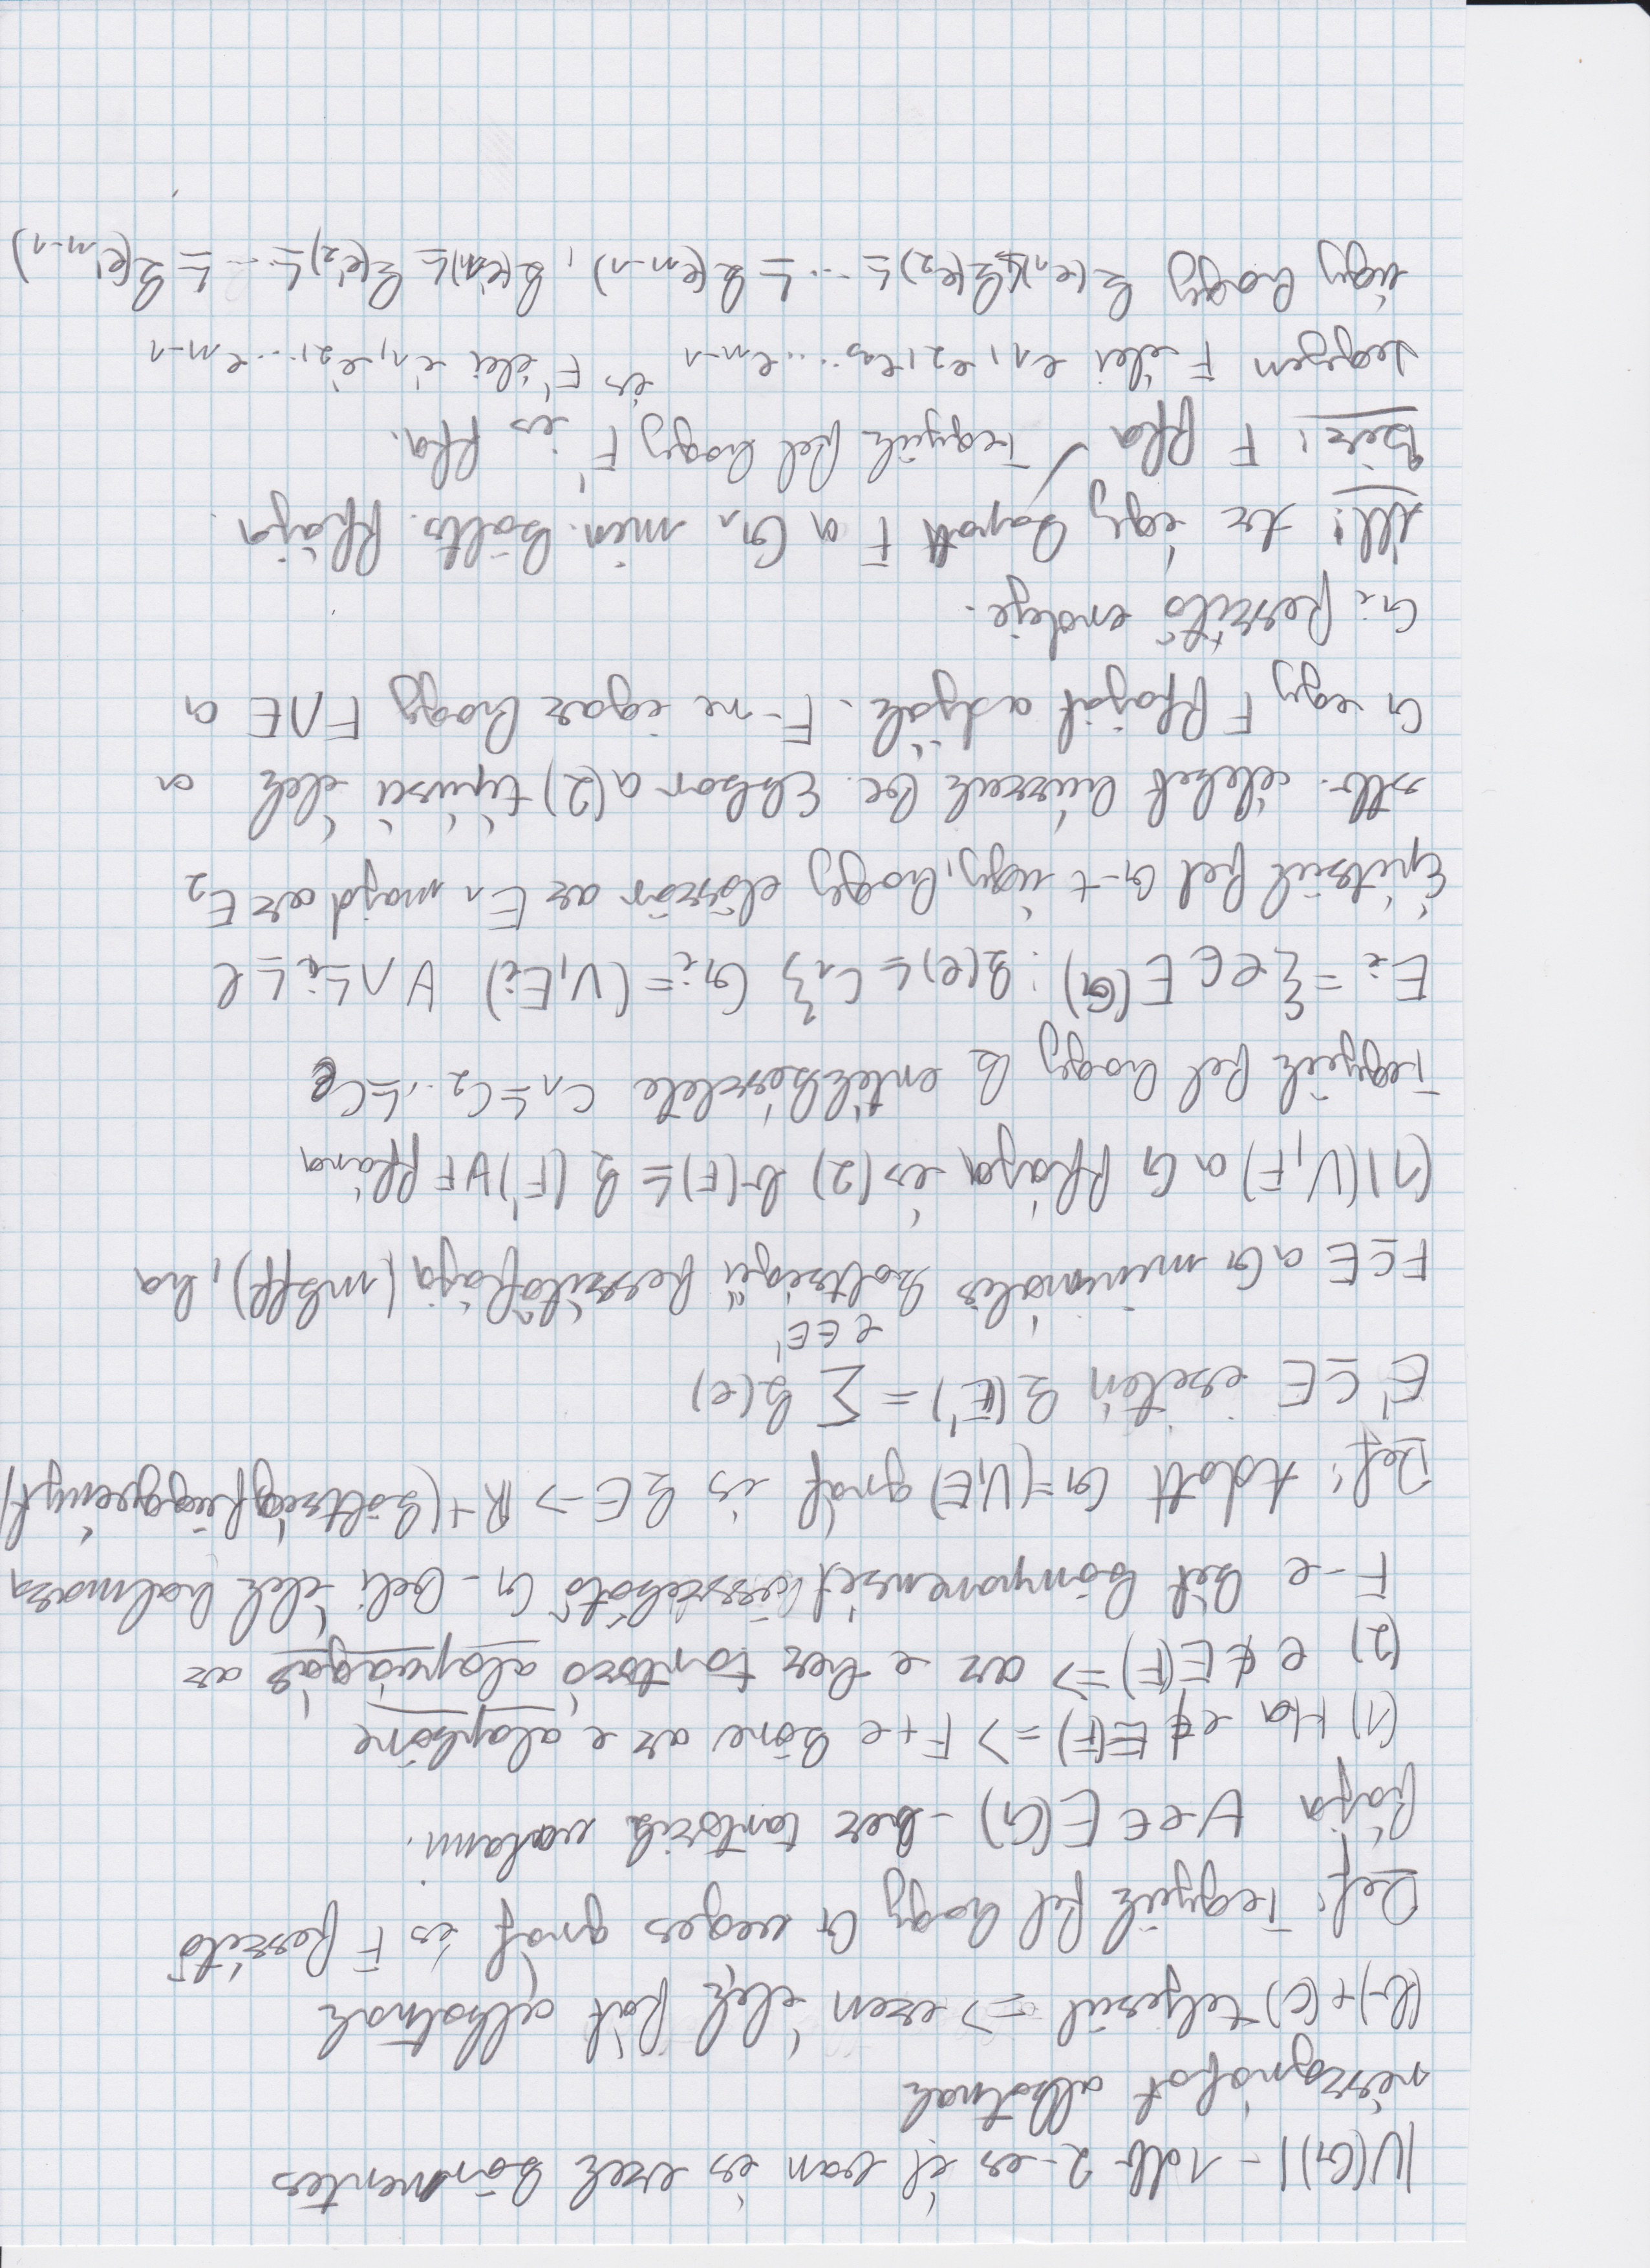 |V(G)| - 1 db 2-es él van és ezek körmentes
részgráfot alkotnak
(b)+(c) teljesül => ezen élek fát alkotnak
Def: Tegyük fel hogy G véges gráf és F feszítő
fája ∀ e ∈ E(G) - hez tartozik valami.
(1) Ha e ∉ E(F) => F+e köre az e alapköre
(2) e ∉ E(F) => az e hez tartozó alapvágás az
F-e két komponensét összekötő G-beli élek halmaza
Def: Adott G=(V,E) gráf és k E -> R+ (költségfüggvény)
E' ⊆ E esetén k(E') = Σ k(e)
e ∈ E'
F ⊆ E a G minimális költségű feszítőfája (mkff), ha
(1) (V,F) a G ffája és (2) k(F) ≤ k(F') ∀ F ffára
Tegyük fel hogy k értékkészlete c1 ≤ c2 .. ≤ cl
Ei = {e ∈ E(G) : k(e) ≤ c1} Gi = (V,Ei) ∀ 1 ≤ i ≤ l
Építsük fel G-t úgy, hogy először az E1 majd az E2
stb. éleket húzzuk be. Ekkor a (2) típusú élek a
G egy F ffáját adják. F-re igaz hogy F∩E a
Gi feszítő erdeje.
Áll: Az így kapott F a G1 min. költs. ffája.
Biz: F ffa ✓ Tegyük fel hogy F' is ffa.
Legyen F élei e1, e2, e3, ... en-1 és F' élei e'1, e'2, ... en-1
úgy hogy k(e1) ≤ k(e2) ≤ ... ≤ k(en-1), k(e'1) ≤ k(e'2) ≤ ... ≤ k(e'n-1)